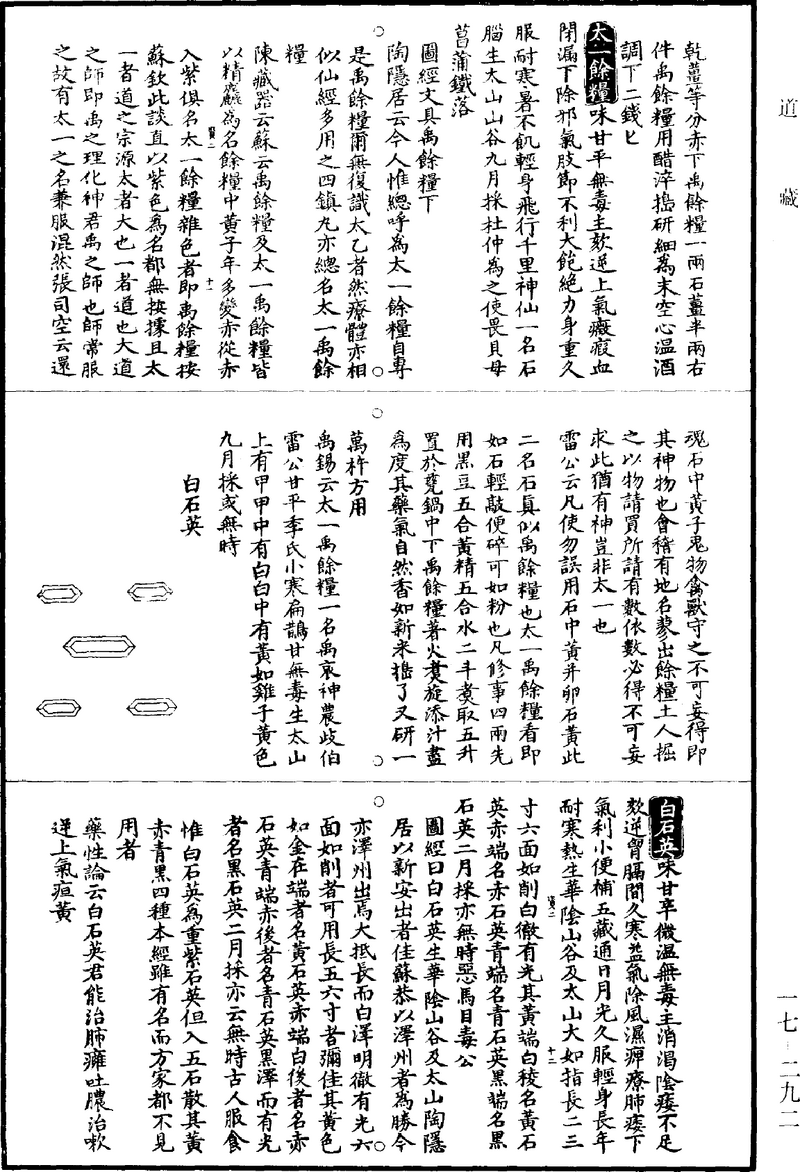 道藏
乾薑等分赤下禹餘糧一兩石薑半兩右
件禹餘糧用醋淬擣研細為末空心温酒
調下二錢匕
太一餘糧味甘平無毒主欬逆上氣癥瘕血
閉漏下除邪氣肢節不利大飽絕力身重久
服耐寒暑不飢輕身飛行千里神仙一名石
腦生太山山谷九月採杜仲為之使畏貝母
菖蒲鐵落
圖經文具禹餘糧下
陶隱居云今人惟總呼為太一餘糧自專
是禹餘糧爾無復識太乙者然療體亦相
似仙經多用之四鎮丸亦總名太一禹餘
糧
陳藏器云蘇云禹餘糧及太一禹餘糧皆
以精麄為名餘糧中黃子年多變赤從赤
入紫俱名太一餘糧雜色者即禹餘糧按
蘇欽此談直以紫色為名都無按據且太
一者道之宗源太者大也一者道也大道
之師即禹之理化神君禹之師也師常服
之故有太一之名兼服混然張司空云還
魂石中黃子鬼物禽獸守之不可妄得即
其神物也會稽有地名蓼出餘糧土人掘
之以物請買所請有數依數必得不可妄
求此猶有神豈非太一也
雷公云凡使勿誤用石中黃并卵石黃此
二名石真似禹餘糧也太一禹餘糧看即
如石輕敲便碎可如粉也凡修事四兩先
用黑豆五合黃精五合水二斗煑取五升
置於甆鍋中下禹餘糧著火煑旋添汁盡
為度其藥氣自然香如新米擣了又研一
萬杵方用
禹錫云太一禹餘糧一名禹哀神農歧伯
雷公甘平李氏小寒扁鵲甘無毒生太山
上有甲甲中有白白中有黃如雞子黃色
九月採或無時
白石英
白石英味甘辛微温無毒主消渴陰痿不足
欬逆胷膈間久寒益氣除風濕痹療肺痿下
氣利小便補五藏通日月光久服輕身長年
耐寒熱生華陰山谷及太山大如指長二三
寸六面如削白徹有光其黃端白稜名黃石
英赤端名赤石英青端名青石英黑端名黑
石英二月採亦無時惡馬目毒公
圖經曰白石英生華陰山谷及太山陶隱
居以新安出者佳蘇恭以澤州者為勝今
亦澤州出焉大抵長而白澤明徹有光六
面如削者可用長五六寸者彌佳其黃色
如金在端者名黃石英赤端白後者名赤
石英青端赤後者名青石英黑澤而有光
者名黑石英二月採亦云無時古人服食
惟白石英為重紫石英但入五石散其黃
赤青黑四種本經雖有名而方家都不見
用者
藥性論云白石英君能治肺癰吐膿治嗽
逆上氣疸黃
一七-二九二